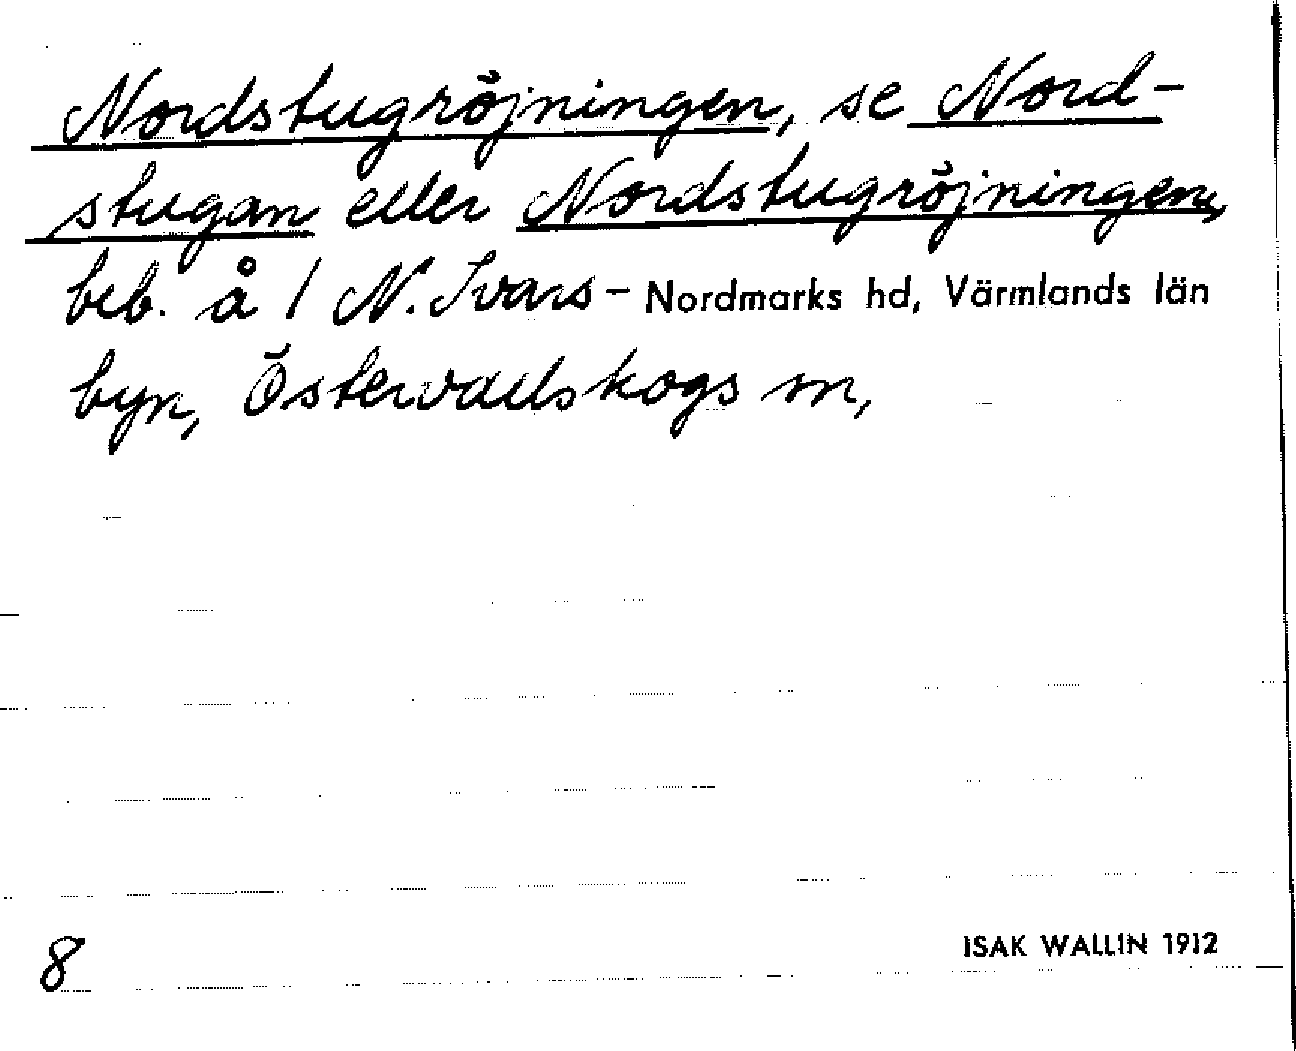 Nordstugröjningen, se Nord-
stugan eller Nordstugröjningen,
beb. å 1 N. Ivars- Nordmarks hd, Värmlands län
byn, Östervallskogs sn,
8
ISAK WALLIN 1912